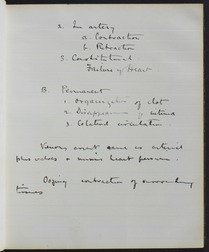 2. In artery
a. Contraction
b. Retraction
3. Constitutional
Failure of Heart
B. Permanent
1. Organization of clot
2. Disappearance of
3. Colateral circulation
Venous
plus valves
heart power.
Oozing contraction of surrounding
tissues